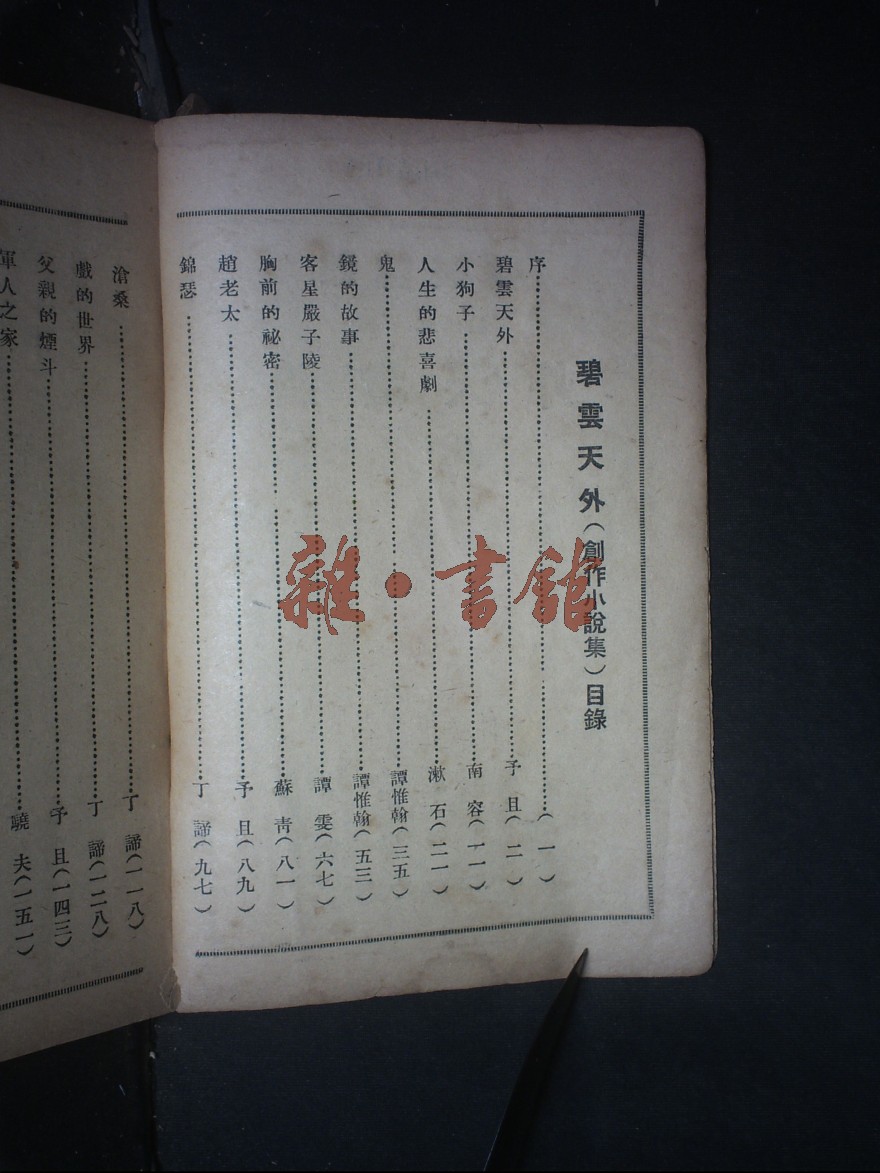 碧雲天外（創作小說集）目錄
序………（一）
碧雲天外………予且（二）
小狗子………南容（一一）
人生的悲喜劇………漱石（二一）
鬼………譚惟翰（三五）
鏡的故事………譚惟翰（五三）
客星嚴子陵………譚雯（六七）
胸前的祕密………蘇青（八一）
趙老太………予且（八九）
錦瑟………丁諦（九七）
滄桑………丁諦（一一八）
戲的世界………丁諦（一二八）
父親的煙斗………予且（一四三）
軍人之家………驍夫（一五一）
雜·書館